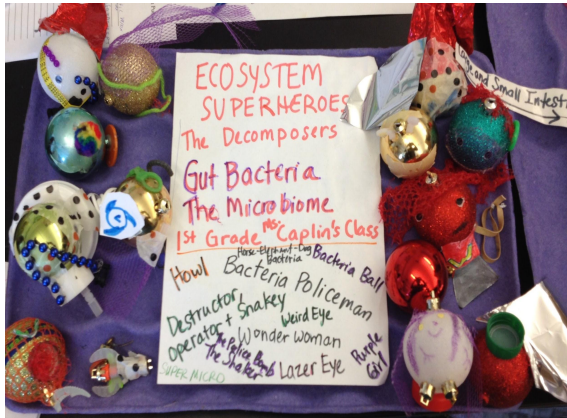 ECOSYSTEM
SUPERHEROES
The Decomposers
Gut Bacteria
The Microbiome
1st Grade Ms. Caplin's Class
Horse-Elephant-Dog
Bacteria
Bacteria Ball
Howl
Bacteria Policeman
Destructor
Operator + Snakey
Weird Eye
Wonder Woman
The Police Bomb
The Shaker
Lazer Eye
Purple
Girl
SUPER MICRO
Large and Small Intesti